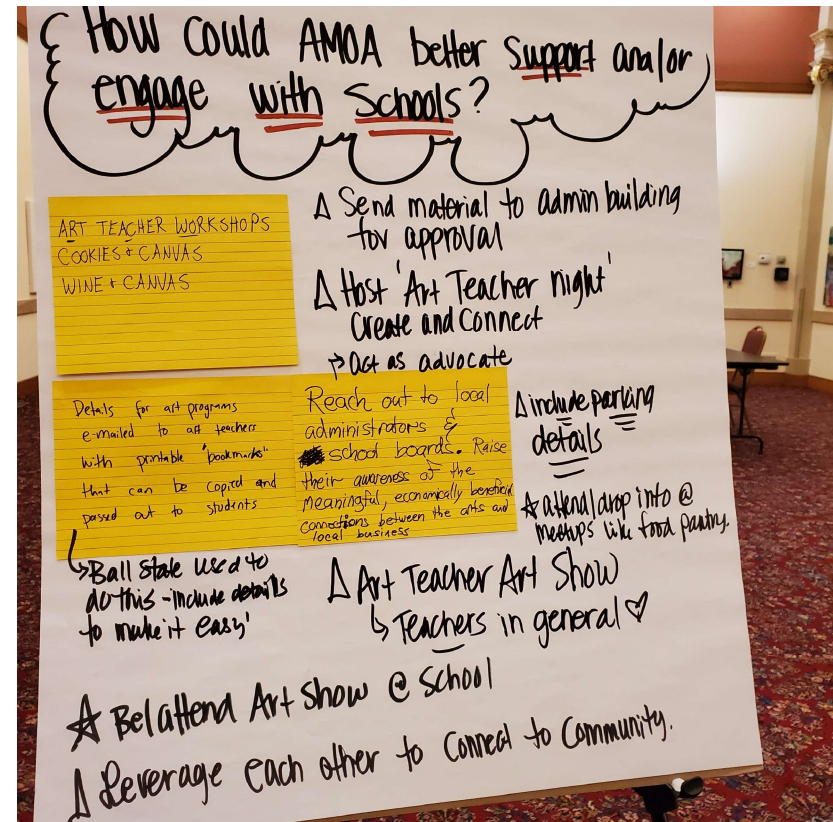 How could AMOA better support and/or
engage with Schools?
ART TEACHER WORKSHOPS
COOKIES & CANVAS
WINE & CANVAS
Δ Send material to admin building
for approval
Δ Host 'Art Teacher night'
Create and Connect
→ act as advocate
Details for art programs
e-mailed to art teachers
with printable "bookmarks"
that can be copied and
passed out to students
↳ Ball State used to
do this - include details
to make it easy'
Reach out to local
administrators &
school boards. Raise
their awareness of the
meaningful, economically beneficial
connections between the arts and
local business
Δ include parking
details
☆ attend/drop into @
meetups like food pantry.
Δ Art Teacher Art Show
↳ Teachers in general ♡
☆ Be/attend Art Show @ School
Δ Leverage each other to Connect to Community.